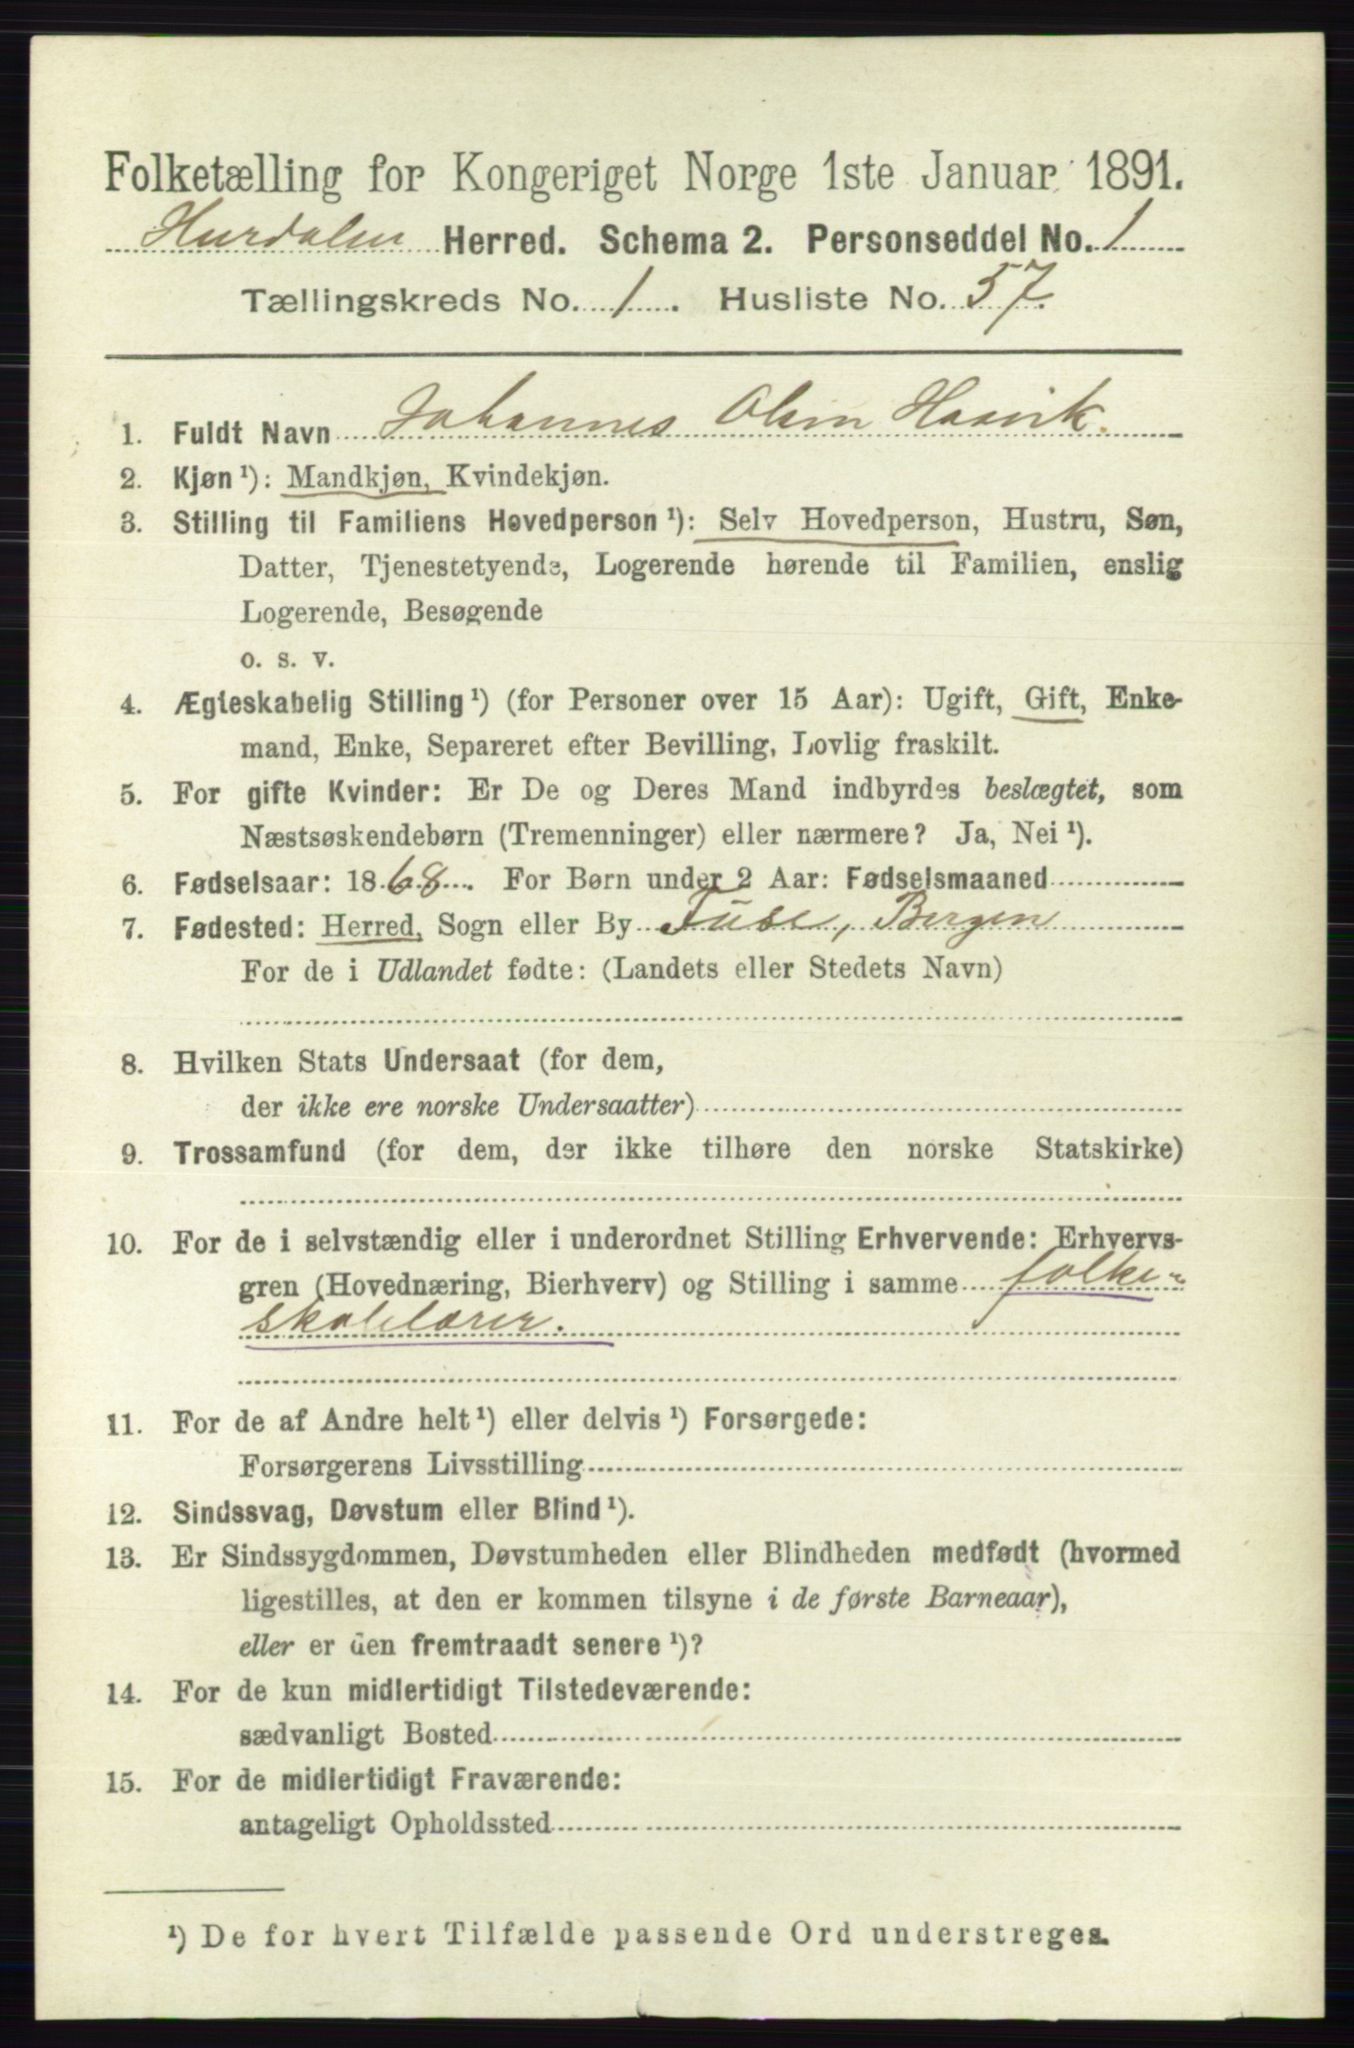 Folketælling for Kongeriget Norge 1ste Januar 1891.
Hurdalen Herred. Schema 2. Personseddel No. 1
Tællingskreds No. 1. Husliste No. 57.
1. Fuldt Navn Johannes Olsen Haavik.
2. Kjøn ¹): Mandkjøn, Kvindekjøn.
3. Stilling til Familiens Hovedperson ¹): Selv Hovedperson, Hustru, Søn,
Datter, Tjenestetyende, Logerende hørende til Familien, enslig
Logerende, Besøgende
o. s. v.
4. Ægteskabelig Stilling ¹) (for Personer over 15 Aar): Ugift, Gift, Enke-
mand, Enke, Separeret efter Bevilling, Lovlig fraskilt.
5. For gifte Kvinder: Er De og Deres Mand indbyrdes beslægtet, som
Næstsøskendebørn (Tremenninger) eller nærmere? Ja, Nei ¹).
6. Fødselsaar: 1868. For Børn under 2 Aar: Fødselsmaaned
7. Fødested: Herred, Sogn eller By Fuse, Bergen
For de i Udlandet fødte: (Landets eller Stedets Navn)
8. Hvilken Stats Undersaat (for dem,
der ikke ere norske Undersaatter)
9. Trossamfund (for dem, der ikke tilhøre den norske Statskirke)
10. For de i selvstændig eller i underordnet Stilling Erhvervende: Erhvervs-
gren (Hovednæring, Bierhverv) og Stilling i samme folke-
skolelærer.
11. For de af Andre helt ¹) eller delvis ¹) Forsørgede:
Forsørgerens Livsstilling
12. Sindssvag, Døvstum eller Blind ¹).
13. Er Sindssygdommen, Døvstumheden eller Blindheden medfødt (hvormed
ligestilles, at den er kommen tilsyne i de første Barneaar),
eller er den fremtraadt senere ¹)?
14. For de kun midlertidigt Tilstedeværende:
sædvanligt Bosted
15. For de midlertidigt Fraværende:
antageligt Opholdssted
¹) De for hvert Tilfælde passende Ord understreges.